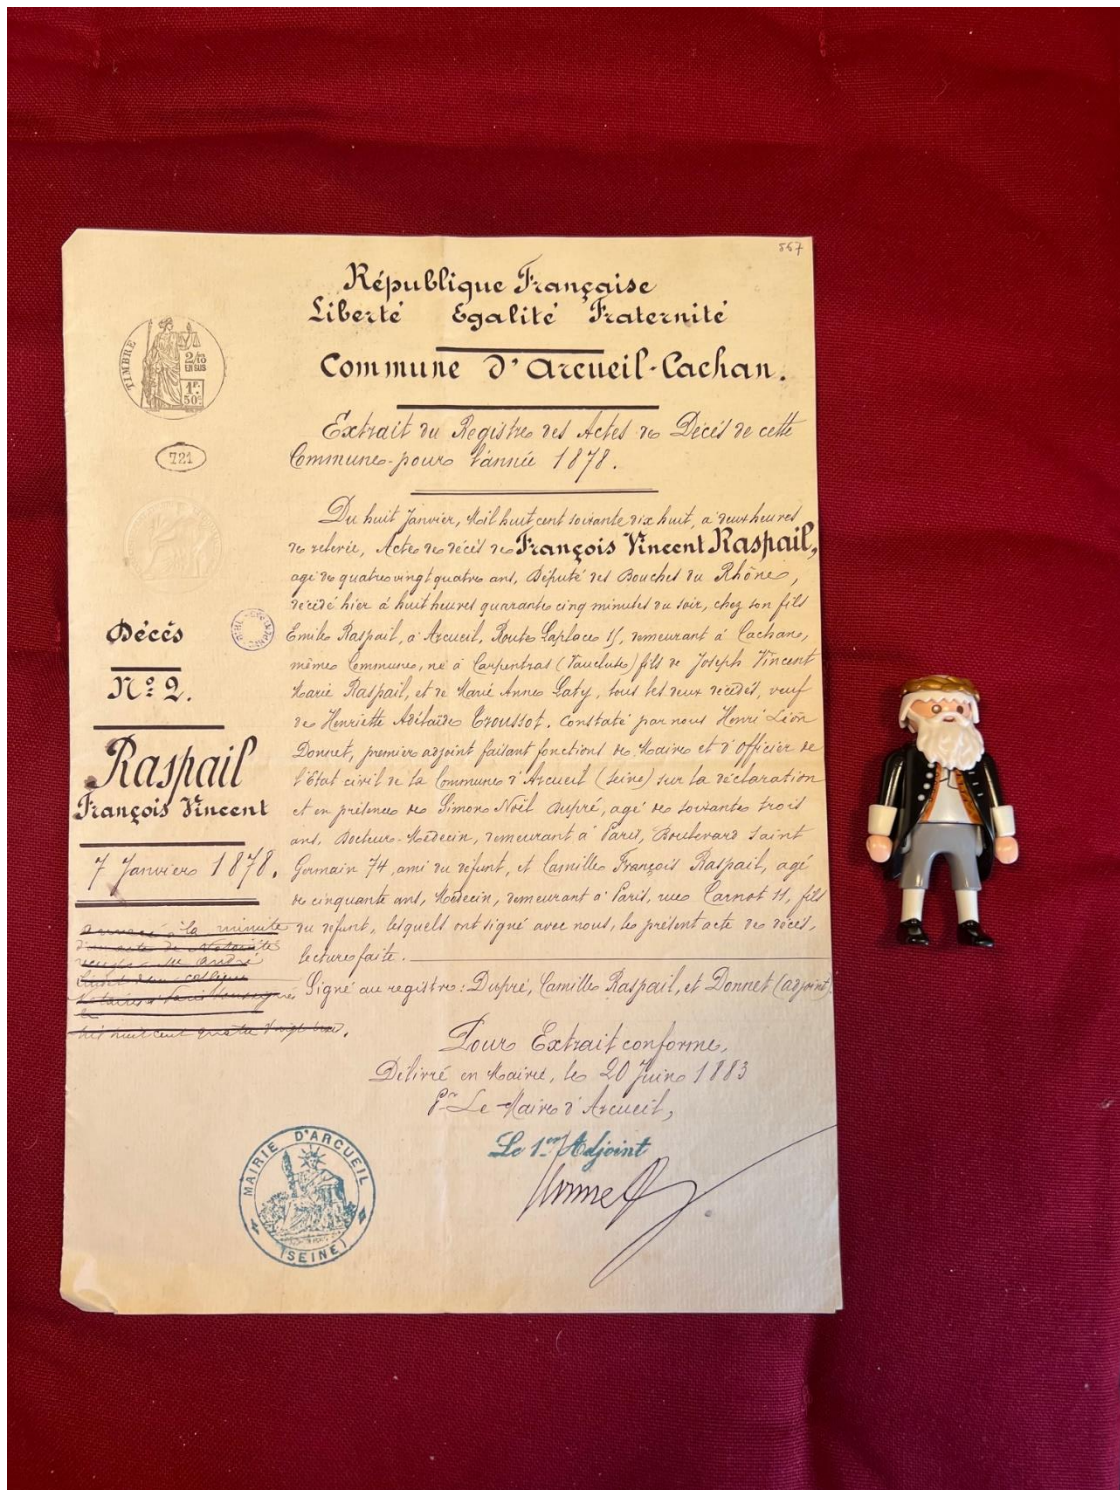 557
République Française
Liberté Egalité Fraternité
Commune d'Arcueil-Cachan.
TIMBRE
2/10
EN SUS
1F.
50c
721
Extrait du Registre des Actes de Décès de cette
Commune pour l'année 1878.
Du huit Janvier, Mil huit cent soixante dix huit, à deux heures
de relevée, Acte de décès de François Vincent Raspail,
agé de quatre vingt quatre ans, Député des Bouches du Rhône,
décédé hier à huit heures quarante cinq minutes du soir, chez son fils
Emile Raspail, à Arcueil, Route Laplace 15, demeurant à Cachan,
même Commune, né à Carpentras (Vaucluse) fils de Joseph Vincent
Marie Raspail, et de Marie Anne Laty, tous les deux décédés, veuf
de Henriette Adélaïde Troussot. Constaté par nous Henri Léon
Donnet, premier adjoint faisant fonctions de Maire et d'Officier de
l'État civil de la Commune d'Arcueil (Seine) sur la déclaration
et en présence de Simon Noël Dupré, agé de soixante trois
ans, Docteur-Médecin, demeurant à Paris, Boulevard Saint
Germain 74, ami du défunt, et Camille François Raspail, agé
de cinquante ans, Médecin, demeurant à Paris, rue Carnot 11, fils
du défunt, lesquels ont signé avec nous, le présent acte de décès,
lecture faite.
Signé au registre: Dupré, Camille Raspail, et Donnet (adjoint).
Décés
No 2.
Raspail
François Vincent
7 Janvier 1878.
à la minute
Pour Extrait conforme,
Délivré en Mairie, le 20 Juin 1883
Pr Le Maire d'Arcueil,
Le 1er Adjoint
Donnet
MAIRIE D'ARCUEIL
(SEINE)